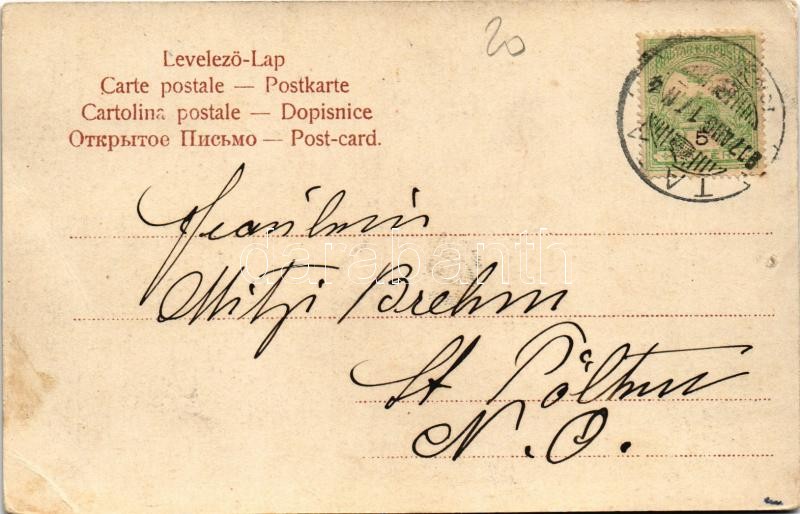 20
Levelező-Lap
Carte postale — Postkarte
Cartolina postale — Dopisnice
Открытое Письмо — Post-card.
MAGYAR KIR. POSTA
5
Fräulein
Mitzi Brehm
St Pölten
N. Ö.
darabanth